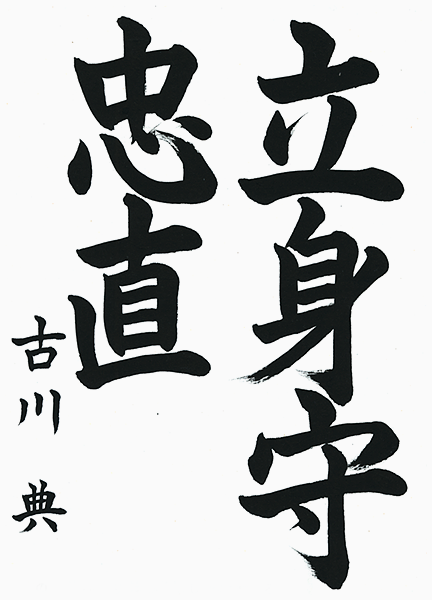 立身守
忠直
古川 典